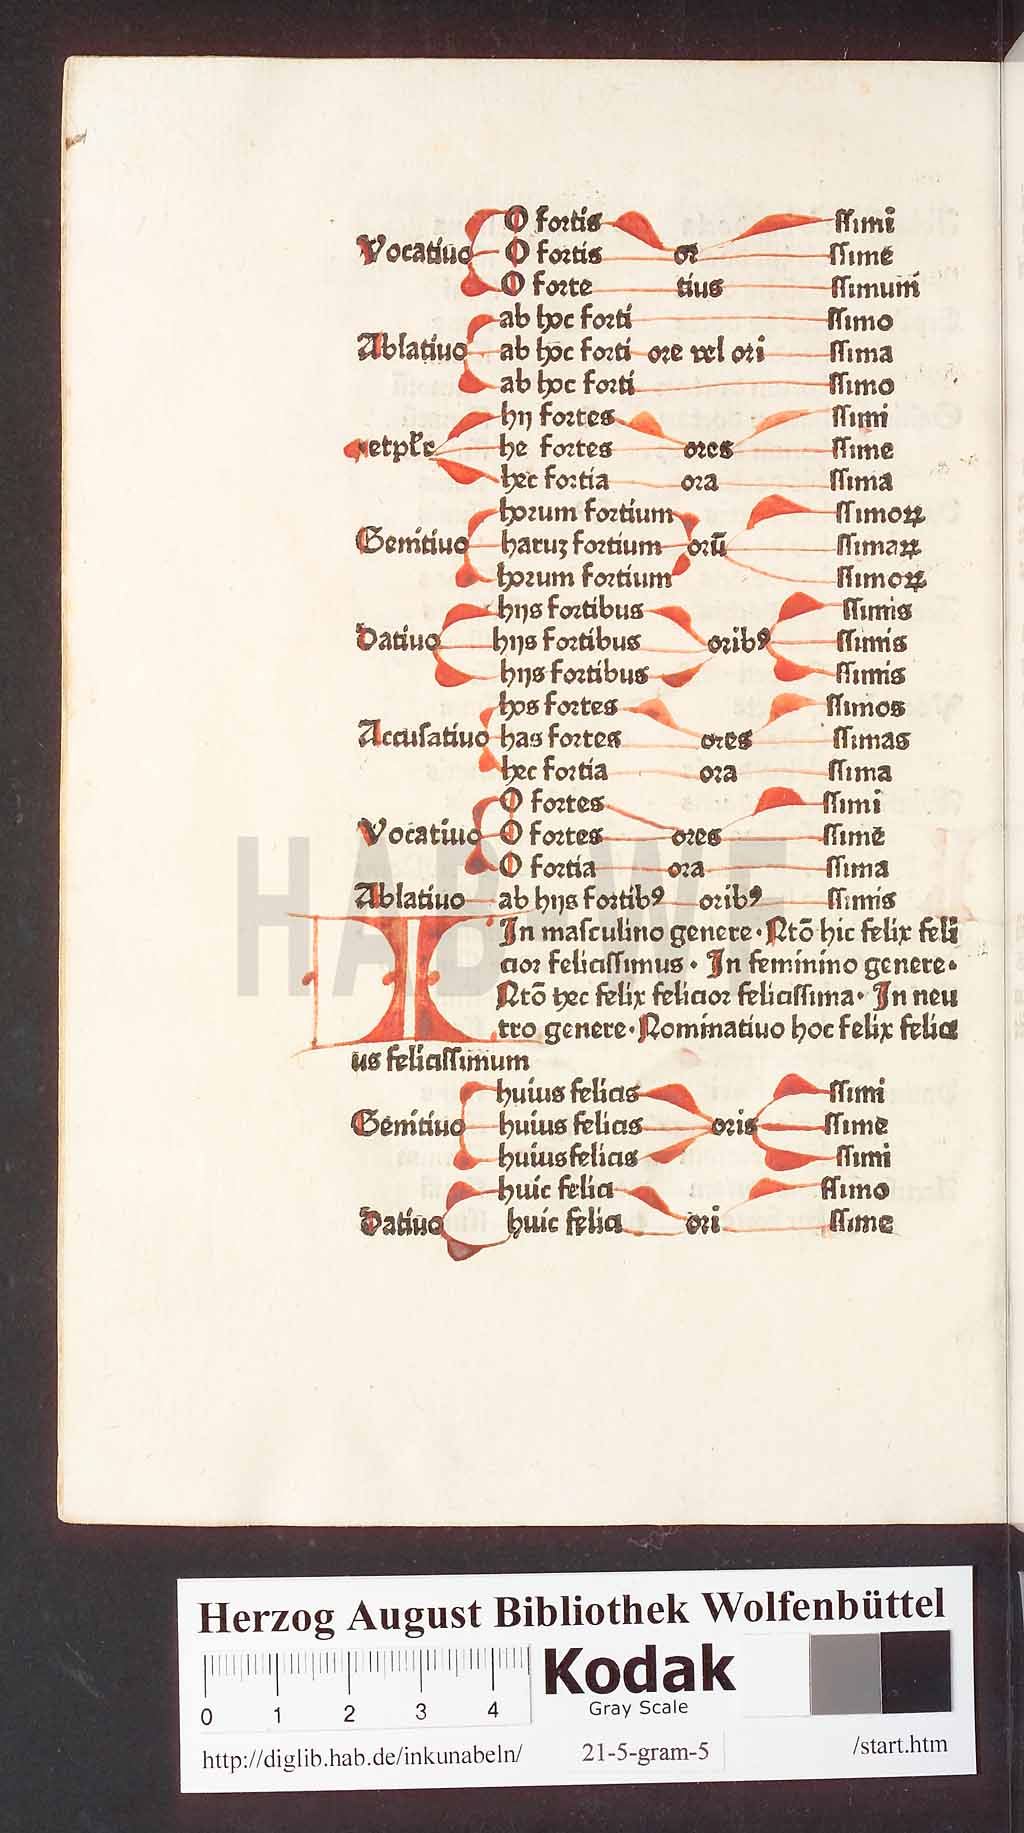 O fortis ssimi
Vocatiuo O fortis or ssime
O forte tius ssimum̄
ab hoc forti ssimo
Ablatiuo ab hoc forti ore vel ori ssima
ab hoc forti ssimo
hij fortes ssimi
etpłr he fortes ores ssime
hec fortia ora ssima
horum fortium ssimoꝝ
Genitiuo haruꝫ fortium orū ssimaꝝ
horum fortium ssimoꝝ
hijs fortibus ssimis
Datiuo hijs fortibus oribꝰ ssimis
hijs fortibus ssimis
hos fortes ssimos
Accusatiuo has fortes ores ssimas
hec fortia ora ssima
O fortes ssimi
Vocatiuo O fortes ores ssimē
O fortia ora ssima
Ablatiuo ab hijs fortibꝰ oribꝰ ssimis
I In masculino genere· Ntō hic felix feli
cior felicissimus· In feminino genere·
Ntō hec felix felicior felicissima· In neu
tro genere· Nominatiuo hoc felix felici
us felicissimum
huius felicis ssimi
Genitiuo huius felicis oris ssime
huius felicis ssimi
huic felici ssimo
Datiuo huic felici ori ssime
HAB WF
Herzog August Bibliothek Wolfenbüttel
0 1 2 3 4
Kodak
Gray Scale
http://diglib.hab.de/inkunabeln/ 21-5-gram-5 /start.htm